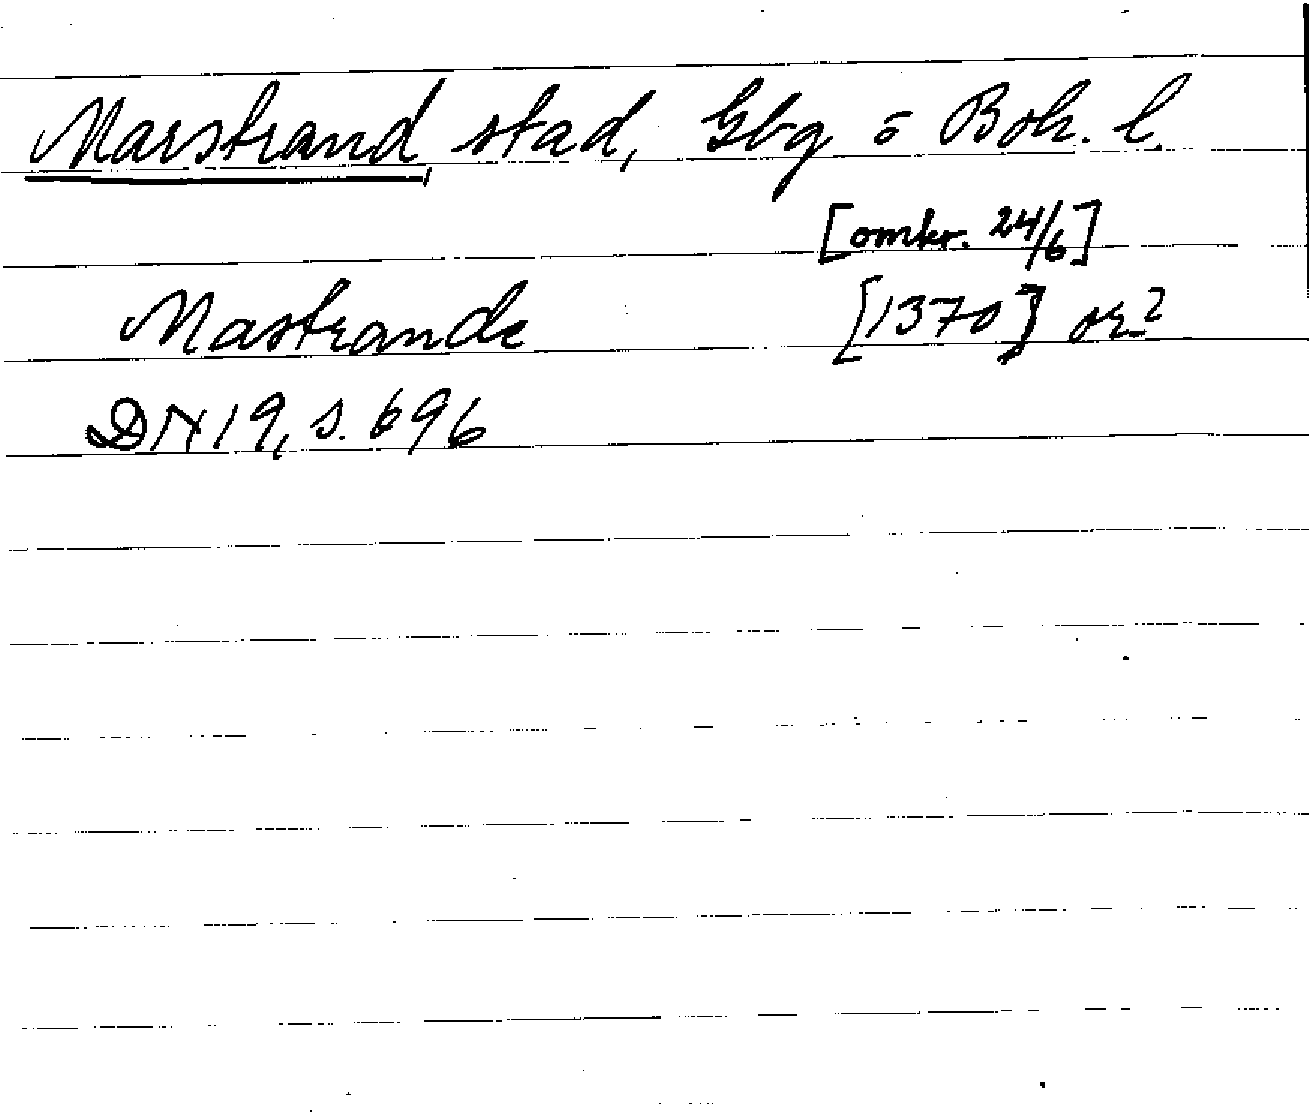 Marstrand, stad, Gbg o Boh. l.
[omkr. 24/6]
Mastrande [1370] or?
DN 19, s. 696